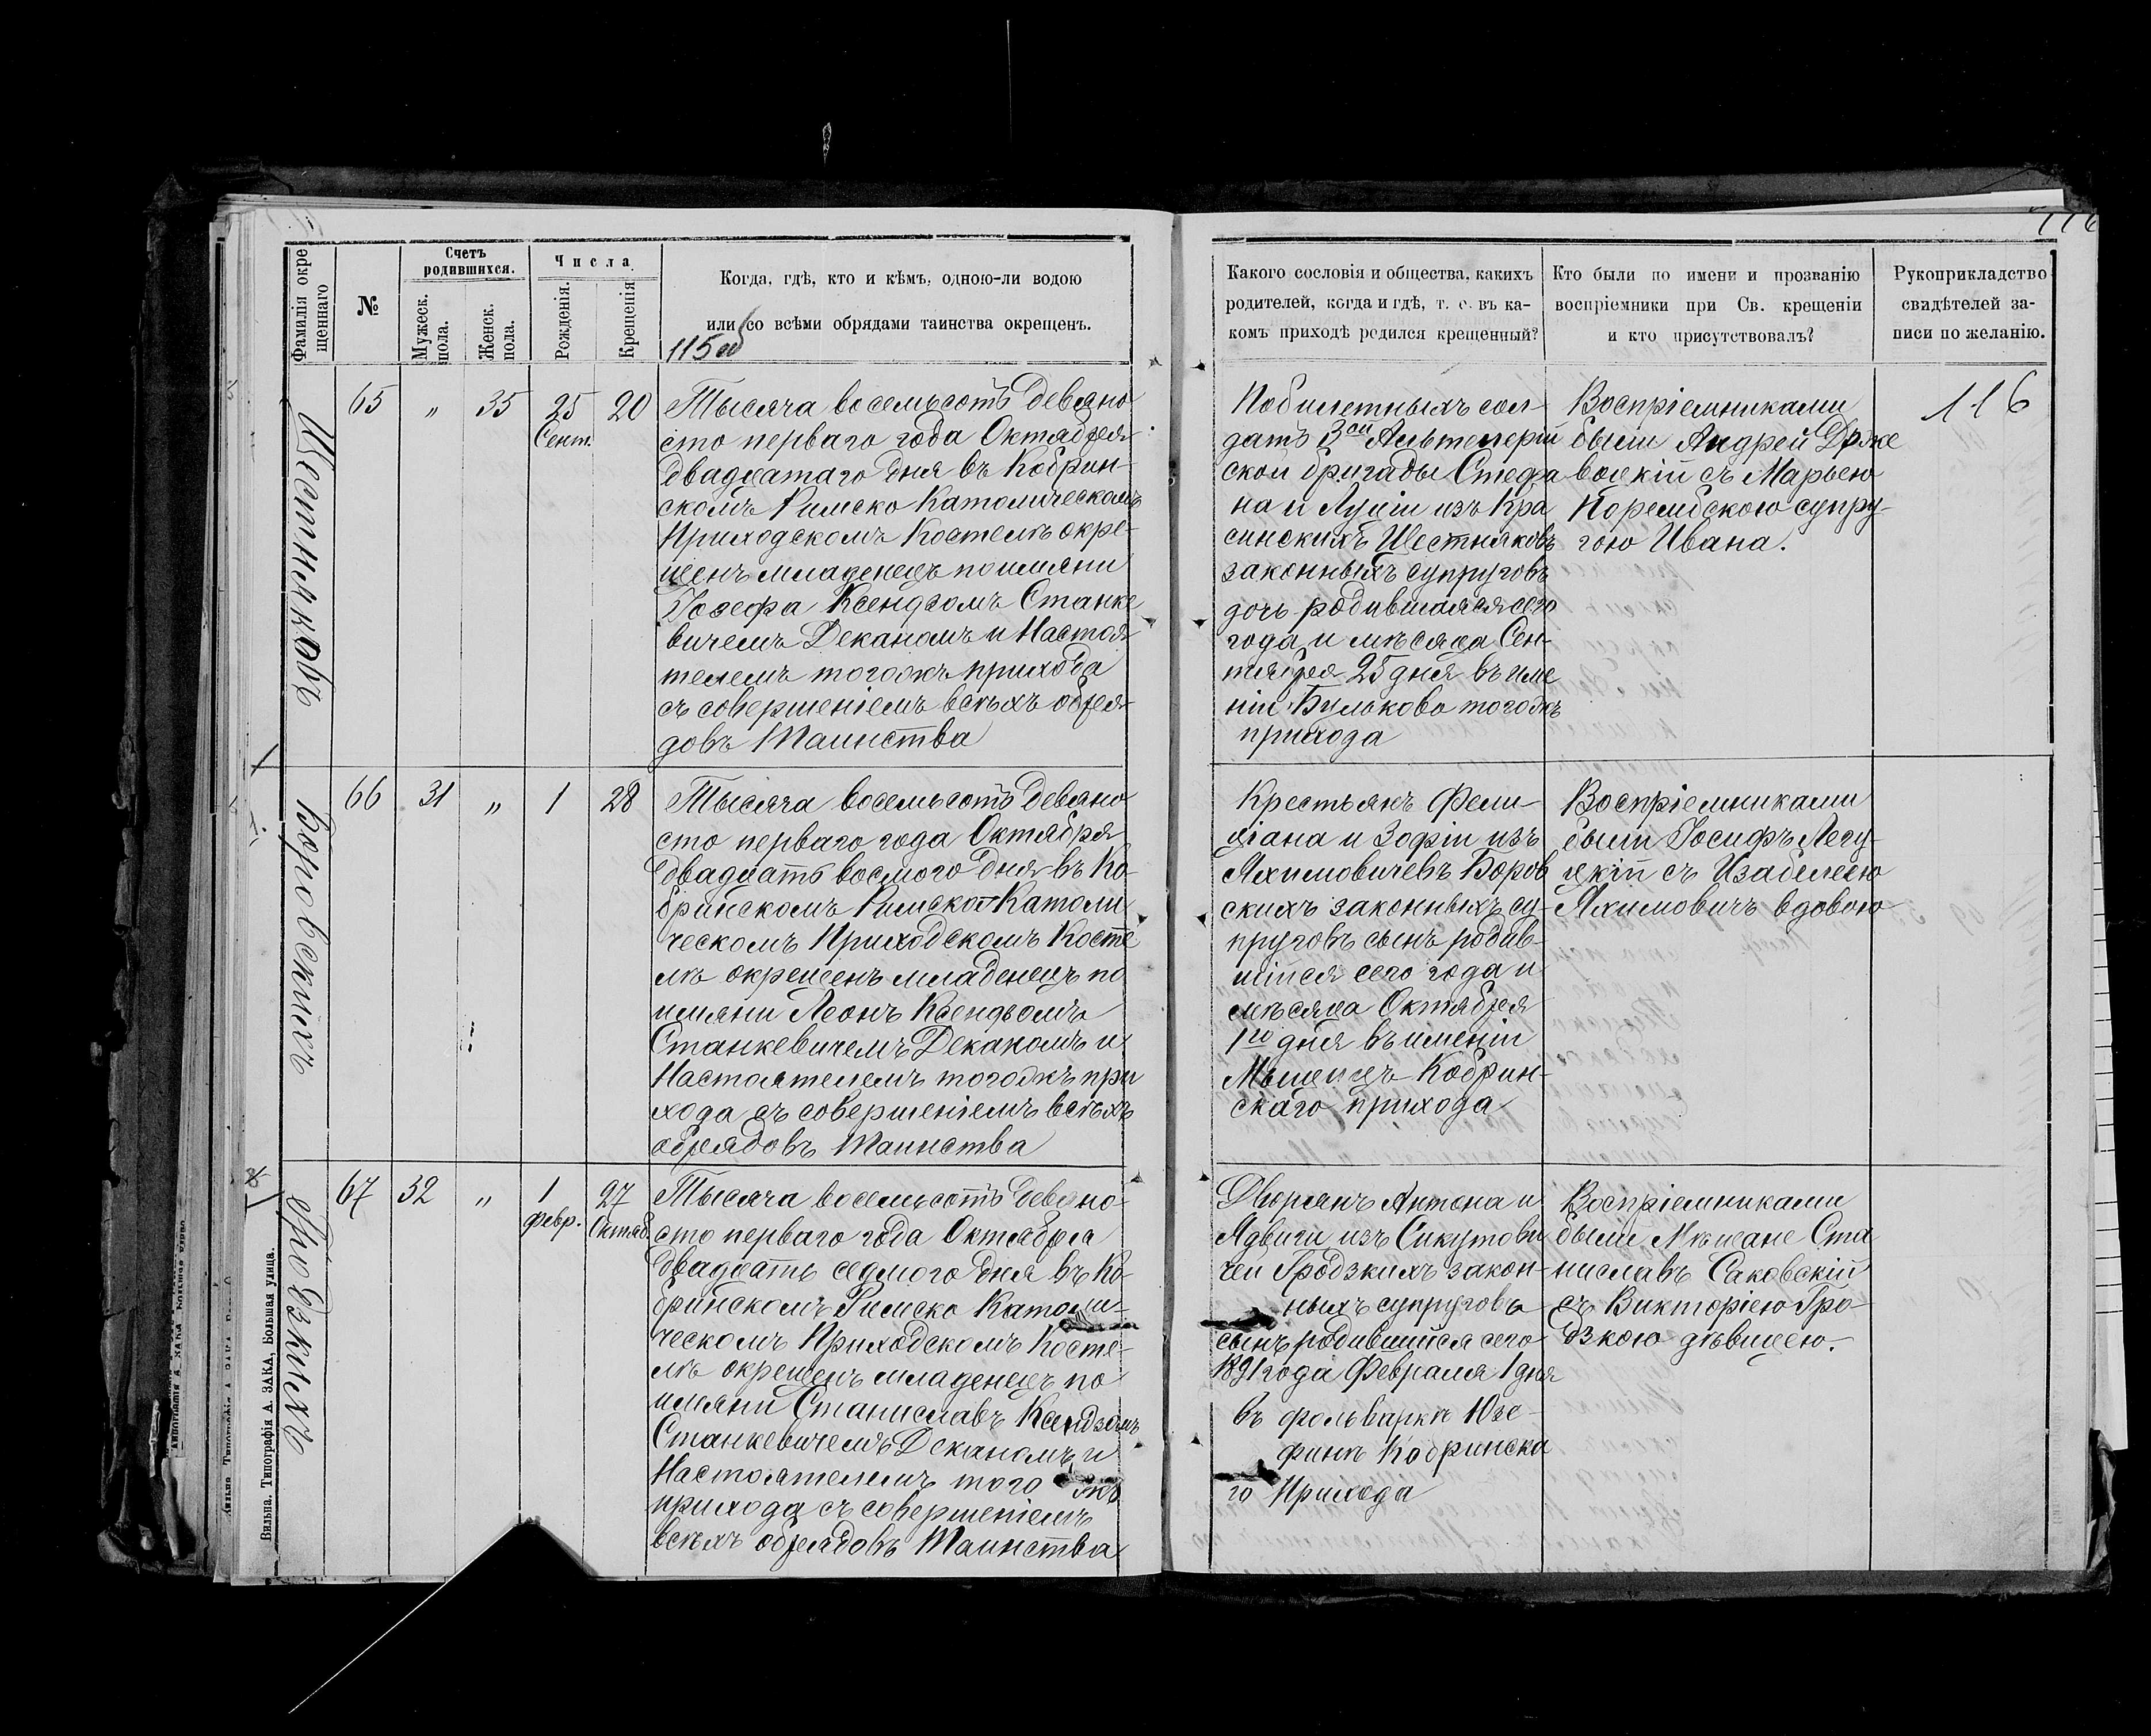 116
Фамилія окре
щеннаго
№
Счетъ
родившихся.
Мужеск.
пола.
Женск.
пола.
Числа
Рожденія.
Крещенія
Когда, гдѣ, кто и кѣмъ, одною-ли водою
или со всѣми обрядами таинства окрещенъ.
115 об
Какого сословія и общества, какихъ
родителей, когда и гдѣ, т. е. въ ка-
комъ приходѣ родился крещенный?
Кто были по имени и прозванію
воспріемники при Св. крещеніи
и кто присутствовалъ?
Рукоприкладство
свидѣтелей за-
писи по желанію.
Шестняковъ
65 „ 35 25 20
Сент.
Тысяча восемьсотъ девяно
сто перваго года Октября
двадцатаго дня въ Кобрин-
скомъ Римско Католическомъ
Приходскомъ Костелѣ окре-
щенъ младенецъ по имяни
Іозефа Ксендзомъ Станке
вичемъ Деканомъ и Настоя
телемъ тогожъ прихода
съ совершеніемъ всѣхъ обря
довъ Таинства
Побилетныхъ сол-
датъ 3ой Артилерій
ской бригады Стефа
на и Луціи изъ Кра
синскихъ Шестняковъ
законныхъ супруговъ
дочь родившаяся сего
года и мѣсяца Сен-
тября 25 дня въ име
ніи Бульково тогожъ
прихода
Воспріемниками
были Андрей Држе
вецкій съ Марьею
Порембскою супру-
гою Ивана.
116
Боровскихъ
66 31 „ 1 28
Тысяча восемьсотъ девяно
сто перваго года Октября
двадцать восмого дня въ Ко-
бринскомъ Римско-Католи
ческомъ Приходскомъ Косте
лѣ окрещенъ младенецъ по
имяни Леонъ Ксендзомъ
Станкевичемъ Деканомъ и
Настоятелемъ тогожъ при
хода съ совершеніемъ всѣхъ
обрядовъ Таинства
Крестьянъ Фели-
ціана и Зофіи изъ
Яхимовичевъ Боров
скихъ законныхъ су-
пруговъ сынъ родив-
шійся сего года и
мѣсяца Октября
1го дня въ имѣніи
Мыщицъ Кобрин-
скаго прихода
Воспріемниками
были Іосифъ Легу-
цкій съ Изабелею
Яхимовичъ вдовою
Гродзкихъ
67 32 „ 1 27
февр. Октяб.
Тысяча восемьсотъ девяно-
сто перваго года Октября
двадцать седмого дня въ Ко-
бринскомъ Римско Католи-
ческомъ Приходскомъ Косте-
лѣ окрещенъ младенецъ по
имяни Станиславъ Ксендзомъ
Станкевичемъ Деканомъ и
Настоятелемъ того жъ
прихода съ совершеніемъ
всѣхъ обрядовъ Таинства
Дворянъ Антона и
Ядвиги изъ Сикутови
чей Гродзкихъ закон-
ныхъ супруговъ
сынъ родившійся сего
1891 года Февраля 1 дня
въ фольваркѣ Юзе-
финѣ Кобринска
го Прихода
Воспріемниками
были Мѣщане Ста
ниславъ Саковскій
съ Викторіею Гро-
дзкою дѣвицею.
Вильна. Типографія А. ЗАКА, Большая улица.